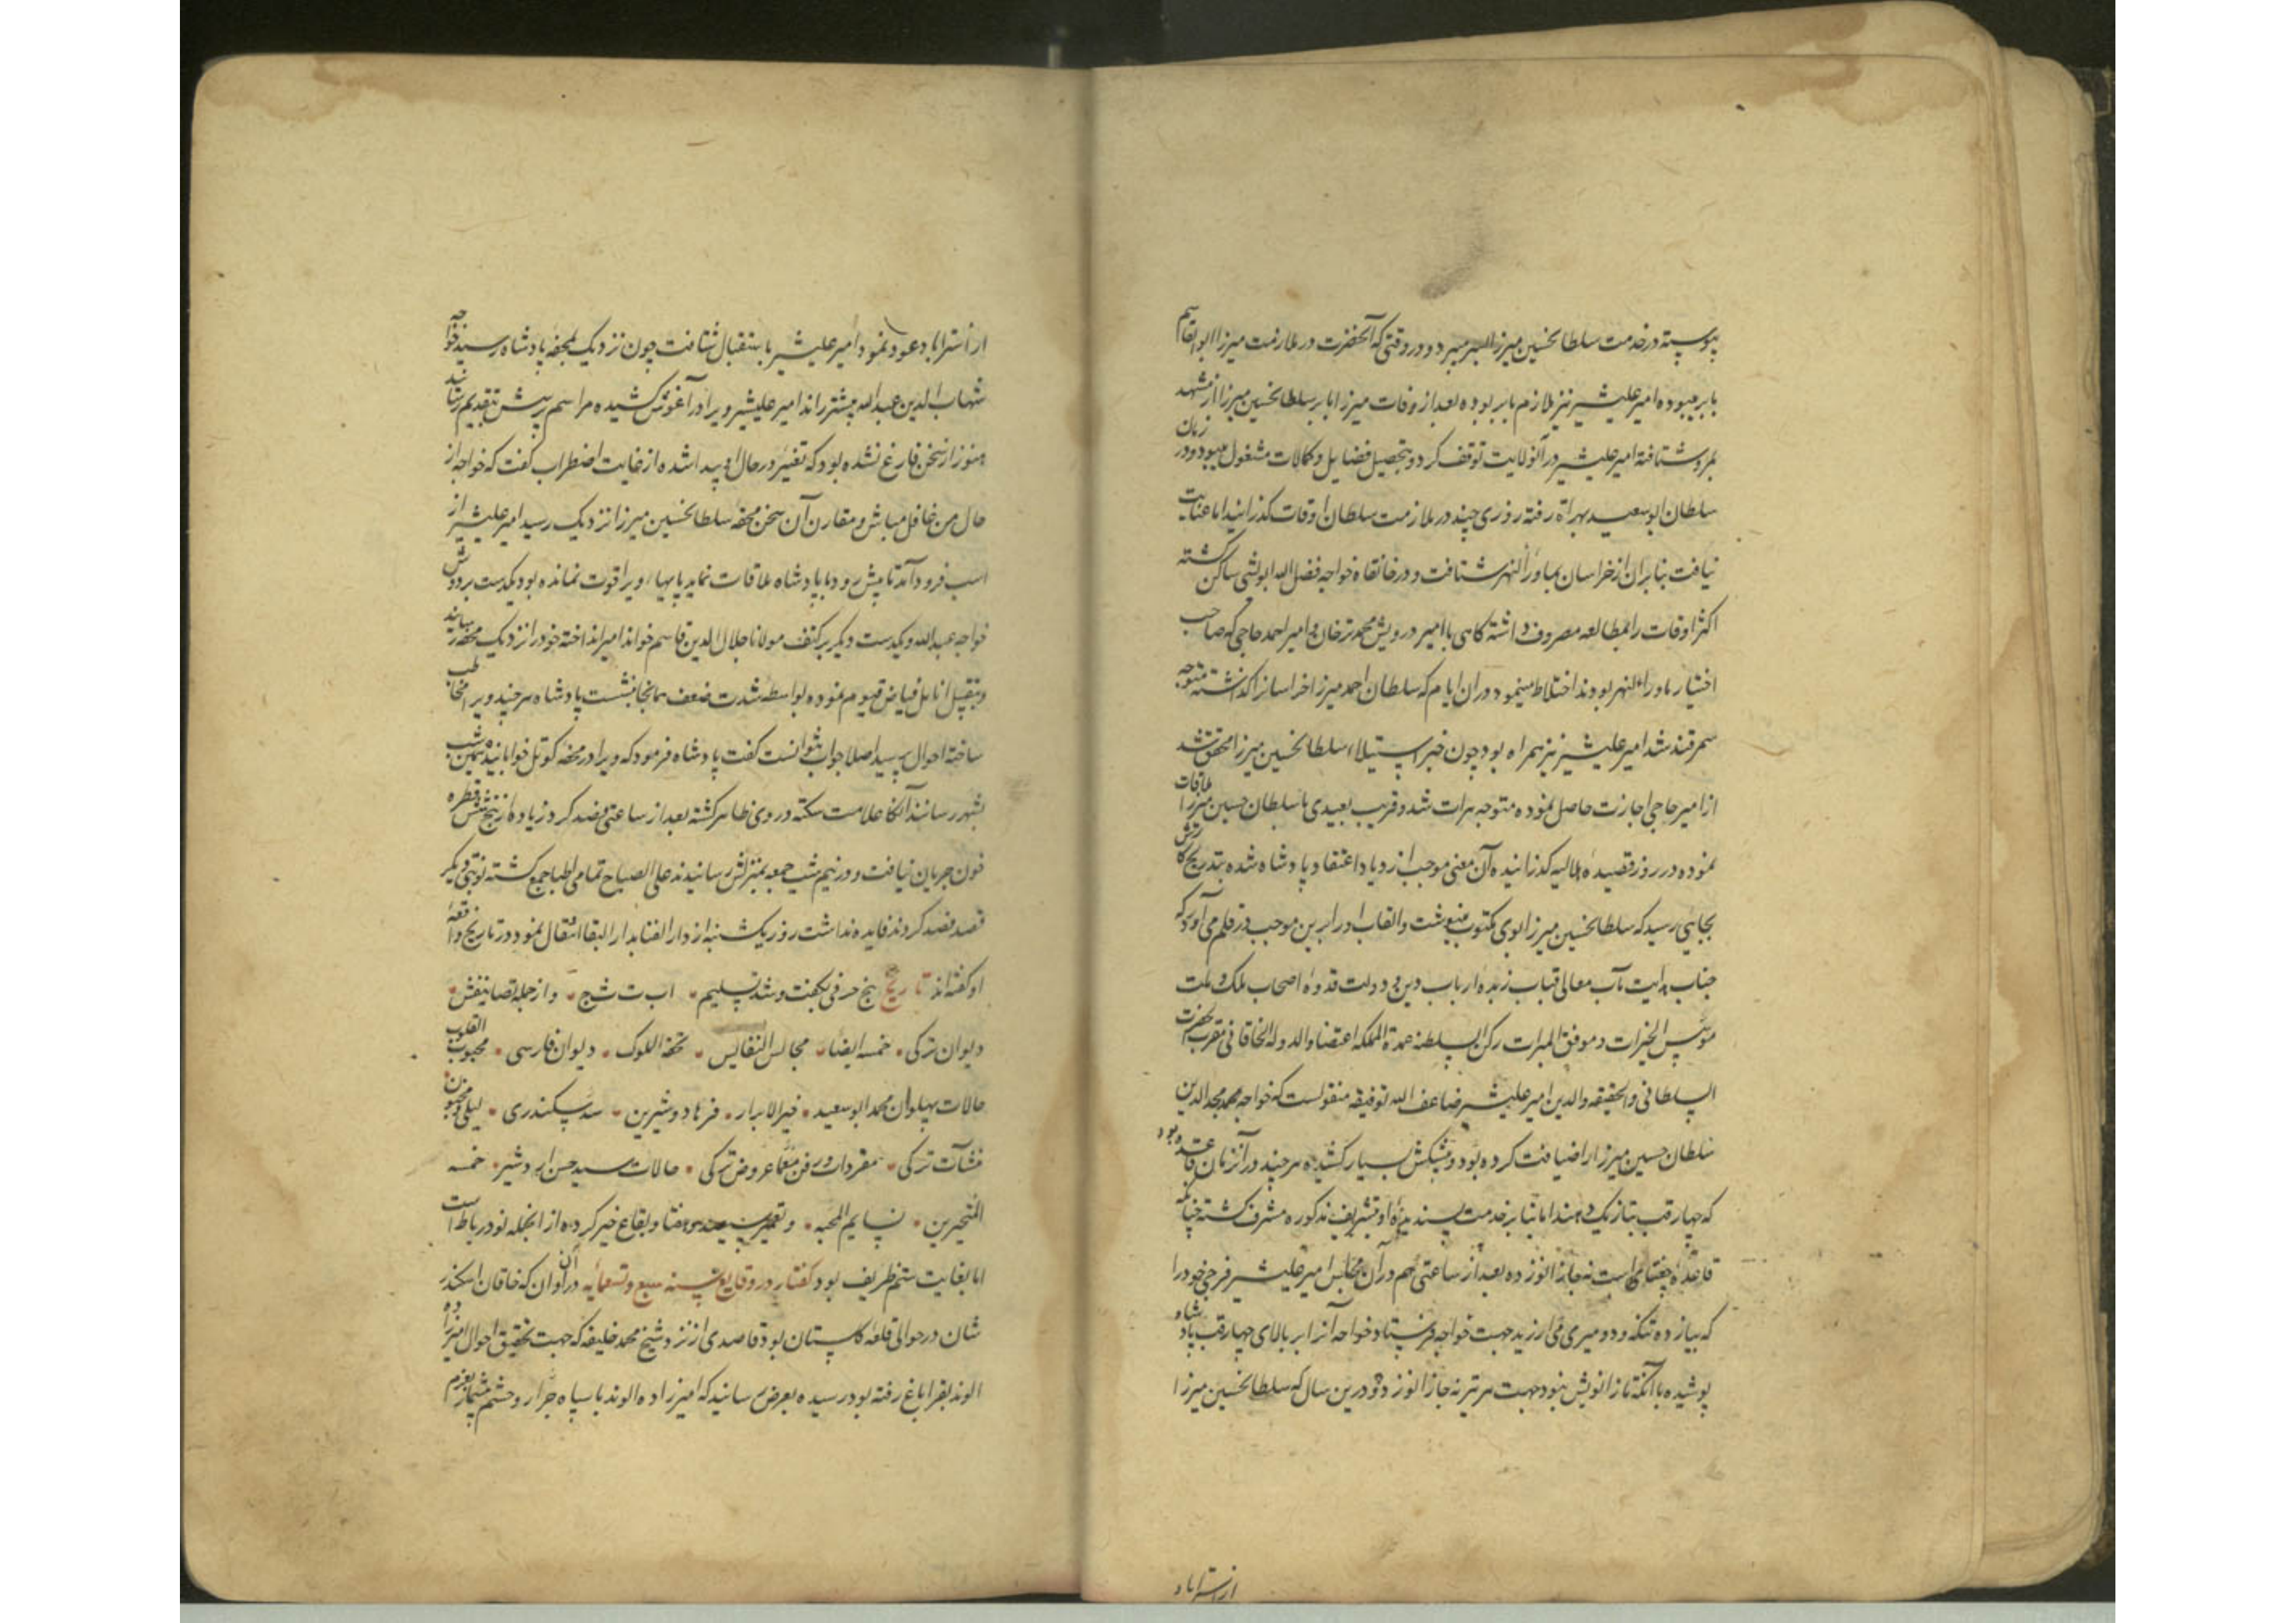 پیوسته در خدمت سلطانحسین میرزا بسر میبرد و در وقتی که آنحضرت در ملازمت میرزا ابوالقاسم
بابر میبوده امیر علیشیر نیز ملازم بابر بوده بعد از وفات میرزا بابر سلطانحسین میرزا از مشهد
بمرو شتافته امیر علیشیر در آنولایت توقف کرد و بتحصیل فضایل و کمالات مشغول میبود و در زمان
سلطان ابوسعید بهراة رفته روزی چند در ملازمت سلطان اوقات گذرانید اما عنایت
نیافت بنابران از خراسان بماوراءالنهر شتافت و در خانقاه خواجه فضل الله ابواللیثی ساکن گشته
اکثر اوقات را بمطالعه مصروف داشته گاهی با امیر درویش محمد ترخان و امیر احمد حاجی که صاحب
اختیار ماوراءالنهر بودند اختلاط مینمود و در ان ایام که سلطان احمد میرزا خراسانرا گذاشته متوجه
سمرقند شد امیر علیشیر نیز همراه بود چون خبر استیلاء سلطانحسین میرزا محقق شد
از امیر حاجی اجازت حاصل نموده متوجه هرات شد و قریب بعیدی با سلطان حسین میرزا ملاقات
نموده در روز قصیده هلالیه گذرانیده آن معنی موجب ازدیاد اعتقاد پادشاه شده بتدریج کارش
بجائی رسید که سلطانحسین میرزا بوی مکتوب مینوشت و القاب او را برین موجب در قلم می آورد که
جناب هدایت مآب معالی قباب زبدهٔ ارباب دین و دولت قدوهٔ اصحاب ملک و ملت
موسس الخیرات و موفق المبرات رکن السلطنه عمدة المملکه اعتضاد الدوله الخاقانی مقرب حضرت
السلطانی والحقیقه والدین امیر علیشیر ضاعف الله توفیقه منقولست که خواجه محمد مجدالدین
سلطان حسین میرزا را ضیافت کرده بود و پیشکش بسیار کشیده هر چند در آنزمان قاعده بود
که چهار قب بتازیک دهند اما بنا بر خدمت پسندیده او بتشریف مذکوره مشرف گشته چنانکه
قاعدهٔ چغتائی است نه جا زانو زده بعد از ساعتی هم در آن مجلس امیر علیشیر فرجی خود را
که بیازده تنکه و دو میری می ارزید جهت خواجه فرستاد و خواجه آنرا بر بالای چهار قب پادشاه
پوشیده با آنکه تا زانویش نبود جهت میر نیز نه جا زانو زد و درین سال که سلطانحسین میرزا
از استراباد
از استراباد عود نمود امیر علیشیر باستقبال شتافت چون نزدیک بمحفه پادشاه رسید خواجه
شهاب الدین عبدالله پیشتر راند امیر علیشیر ویرا در آغوش کشیده مراسم پرسش بتقدیم رسانید
هنوز از سخن فارغ نشده بود که تغییر در حال او پیدا شده از غایت اضطراب گفت که خواجه از
حال من غافل مباش و مقارن آن سخن محفه سلطانحسین میرزا نزدیک رسید امیر علیشیر از
اسب فرود آمد تا پیش رود با پادشاه ملاقات نماید پایهاء ویرا قوت نمانده بود یکدست بر دوش
خواجه عبدالله و یکدست دیگر بر کتف مولانا جلال الدین قاسم خواند امیر انداخته خود را نزدیک محفه رسانید
و بتقبیل انامل فیاض قیوم نموده بواسطه شدت ضعف همانجا بنشست پادشاه هر چند ویرا مخاطب
ساخته احوال پرسید اصلا جواب نتوانست گفت پادشاه فرمود که ویرا در محفه کوتل خوابانیده همین شب
بشهر رسانند آنگاه علامت سکته در وی ظاهر گشته بعد از ساعتی فصد کرد زیاده از پنج شش قطره
خون جریان نیافت و در نیم شب جمعه بمنزلش رسانیدند علی الصباح تمامی اطبا جمع گشته نوبتی دیگر
قصد فصد کردند فایده نداشت روز یکشنبه از دار الفنا بدار البقا انتقال نمود در تاریخ واقعهٔ
او گفته اند تاریخ پنج حرفی بگفت و شد تسلیم ا ب ت ث ج و از جمله تصانیفش
دیوان ترکی خمسه ایضاً مجالس النفایس تحفه الملوک دیوان فارسی محبوب القلوب
حالات پهلوان محمد ابوسعید خیر الابرار فرهاد و شیرین سد سکندری لیلی و مجنون
منشآت ترکی مفردات در فن معما عروض ترکی حالات سید حسن اردشیر خمسه
المتحیرین نسایم المحبه و تعمیر سیصد و هفتاد بقاع خیر کرده از انجمله نود رباط است
اما بغایت ستم ظریف بود گفتار در وقایع سنه سبع و تسعمائه در آن اوان که خاقان اسکندر
شان در حوالی قلعه گلستان بود قاصدی از نزد شیخ محمد خلیفه که جهت تحقیق احوال امیرزاده
الوند بقراباغ رفته بود رسیده بعرض رسانید که امیرزاده الوند با سپاه جرار و حشم بیشمار بعزم